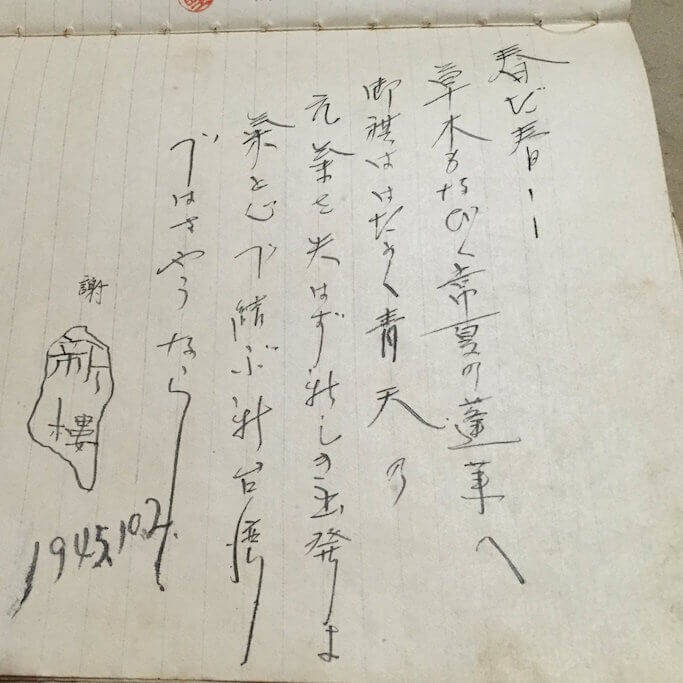 春だ春ーー
草木もなびく常夏の蓬莱へ
御旗ははためく青天の
元氣を失はず新しの出発よ
氣と心で結ぶ新台湾
ではさやうなら
謝
新樓
1945.10.2.